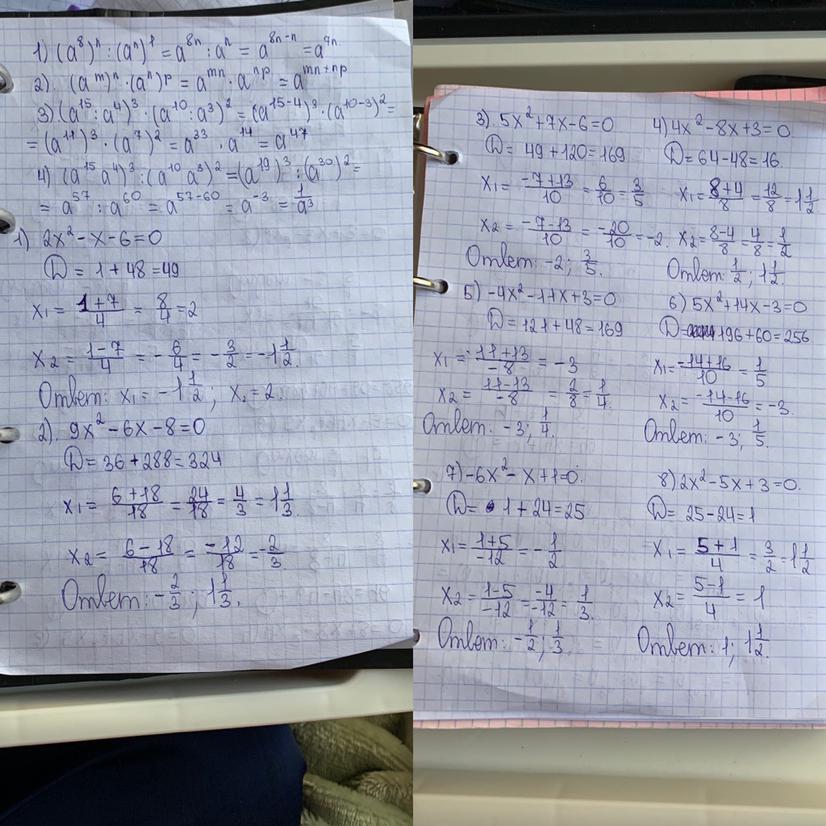 1) (a⁸)ⁿ : (aⁿ)¹ = a⁸ⁿ : aⁿ = a⁸ⁿ⁻ⁿ = a⁷ⁿ
2). (aᵐ)ⁿ · (aⁿ)ᵖ = aᵐⁿ · aⁿᵖ = aᵐⁿ⁺ⁿᵖ
3) (a¹⁵ : a⁴)³ · (a¹⁰ : a³)² = (a¹⁵⁻⁴)³ · (a¹⁰⁻³)² =
= (a¹¹)³ · (a⁷)² = a³³ · a¹⁴ = a⁴⁷
4) (a¹⁵ a⁴)³ : (a¹⁰ a³)² = (a¹⁹)³ : (a³⁰)² =
= a⁵⁷ : a⁶⁰ = a⁵⁷⁻⁶⁰ = a⁻³ = 1/a³
1) 2x² - x - 6 = 0
D = 1 + 48 = 49
x₁ = (1+7)/4 = 8/4 = 2
x₂ = (1-7)/4 = -6/4 = -3/2 = -1 1/2.
Ответ: x₁ = -1 1/2; x₂ = 2.
2). 9x² - 6x - 8 = 0
D = 36 + 288 = 324
x₁ = (6+18)/18 = 24/18 = 4/3 = 1 1/3.
x₂ = (6-18)/18 = -12/18 = -2/3
Ответ: -2/3; 1 1/3.
3). 5x² + 7x - 6 = 0
D = 49 + 120 = 169
x₁ = (-7+13)/10 = 6/10 = 3/5
x₂ = (-7-13)/10 = -20/10 = -2.
Ответ: -2; 3/5.
4) 4x² - 8x + 3 = 0
D = 64 - 48 = 16.
x₁ = (8+4)/8 = 12/8 = 1 1/2
x₂ = (8-4)/8 = 4/8 = 1/2
Ответ: 1/2; 1 1/2.
5) -4x² - 11x + 3 = 0
D = 121 + 48 = 169
x₁ = (11+13)/-8 = -3
x₂ = (11-13)/-8 = 2/8 = 1/4.
Ответ: -3; 1/4.
6) 5x² + 14x - 3 = 0
D = 196 + 60 = 256
x₁ = (-14+16)/10 = 1/5
x₂ = (-14-16)/10 = -3.
Ответ: -3; 1/5.
7) -6x² - x + 1 = 0.
D = 1 + 24 = 25
x₁ = (1+5)/-12 = -1/2
x₂ = (1-5)/-12 = -4/-12 = 1/3.
Ответ: -1/2; 1/3.
8) 2x² - 5x + 3 = 0.
D = 25 - 24 = 1
x₁ = (5+1)/4 = 3/2 = 1 1/2
x₂ = (5-1)/4 = 1
Ответ: 1; 1 1/2.